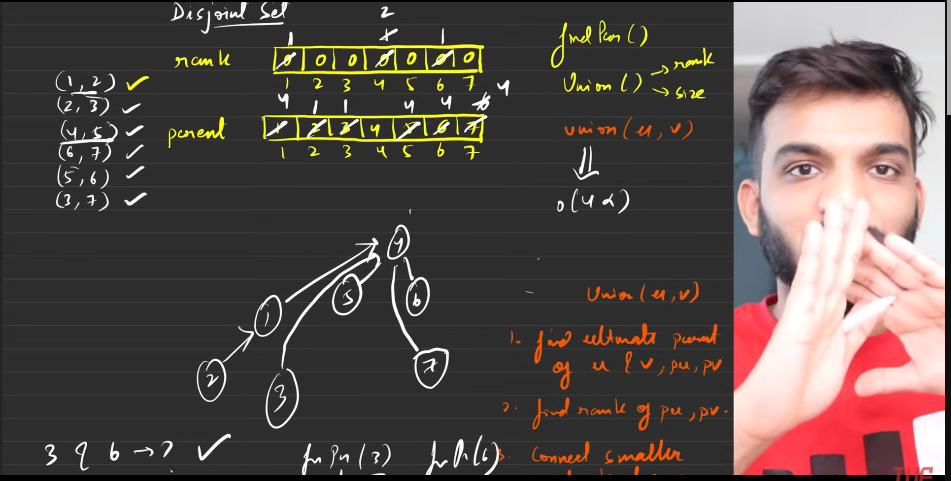 Disjoint Set
2
1 1 1
rank 0 0 0 0 0 0 0
1 2 3 4 5 6 7
4 1 1 4 4 6 4
parent 1 2 3 4 5 6 7
1 2 3 4 5 6 7
(1, 2) ✓
(2, 3) ✓
(4, 5) ✓
(6, 7) ✓
(5, 6) ✓
(3, 7) ✓
findPar()
Union() → rank
→ size
union(u, v)
O(4α)
4
1 5 6
2 3 7
Union(u, v)
1. find ultimate parent
of u & v, pu, pv
2. find rank of pu, pv.
3. connect smaller
3 & 6 → ? ✓